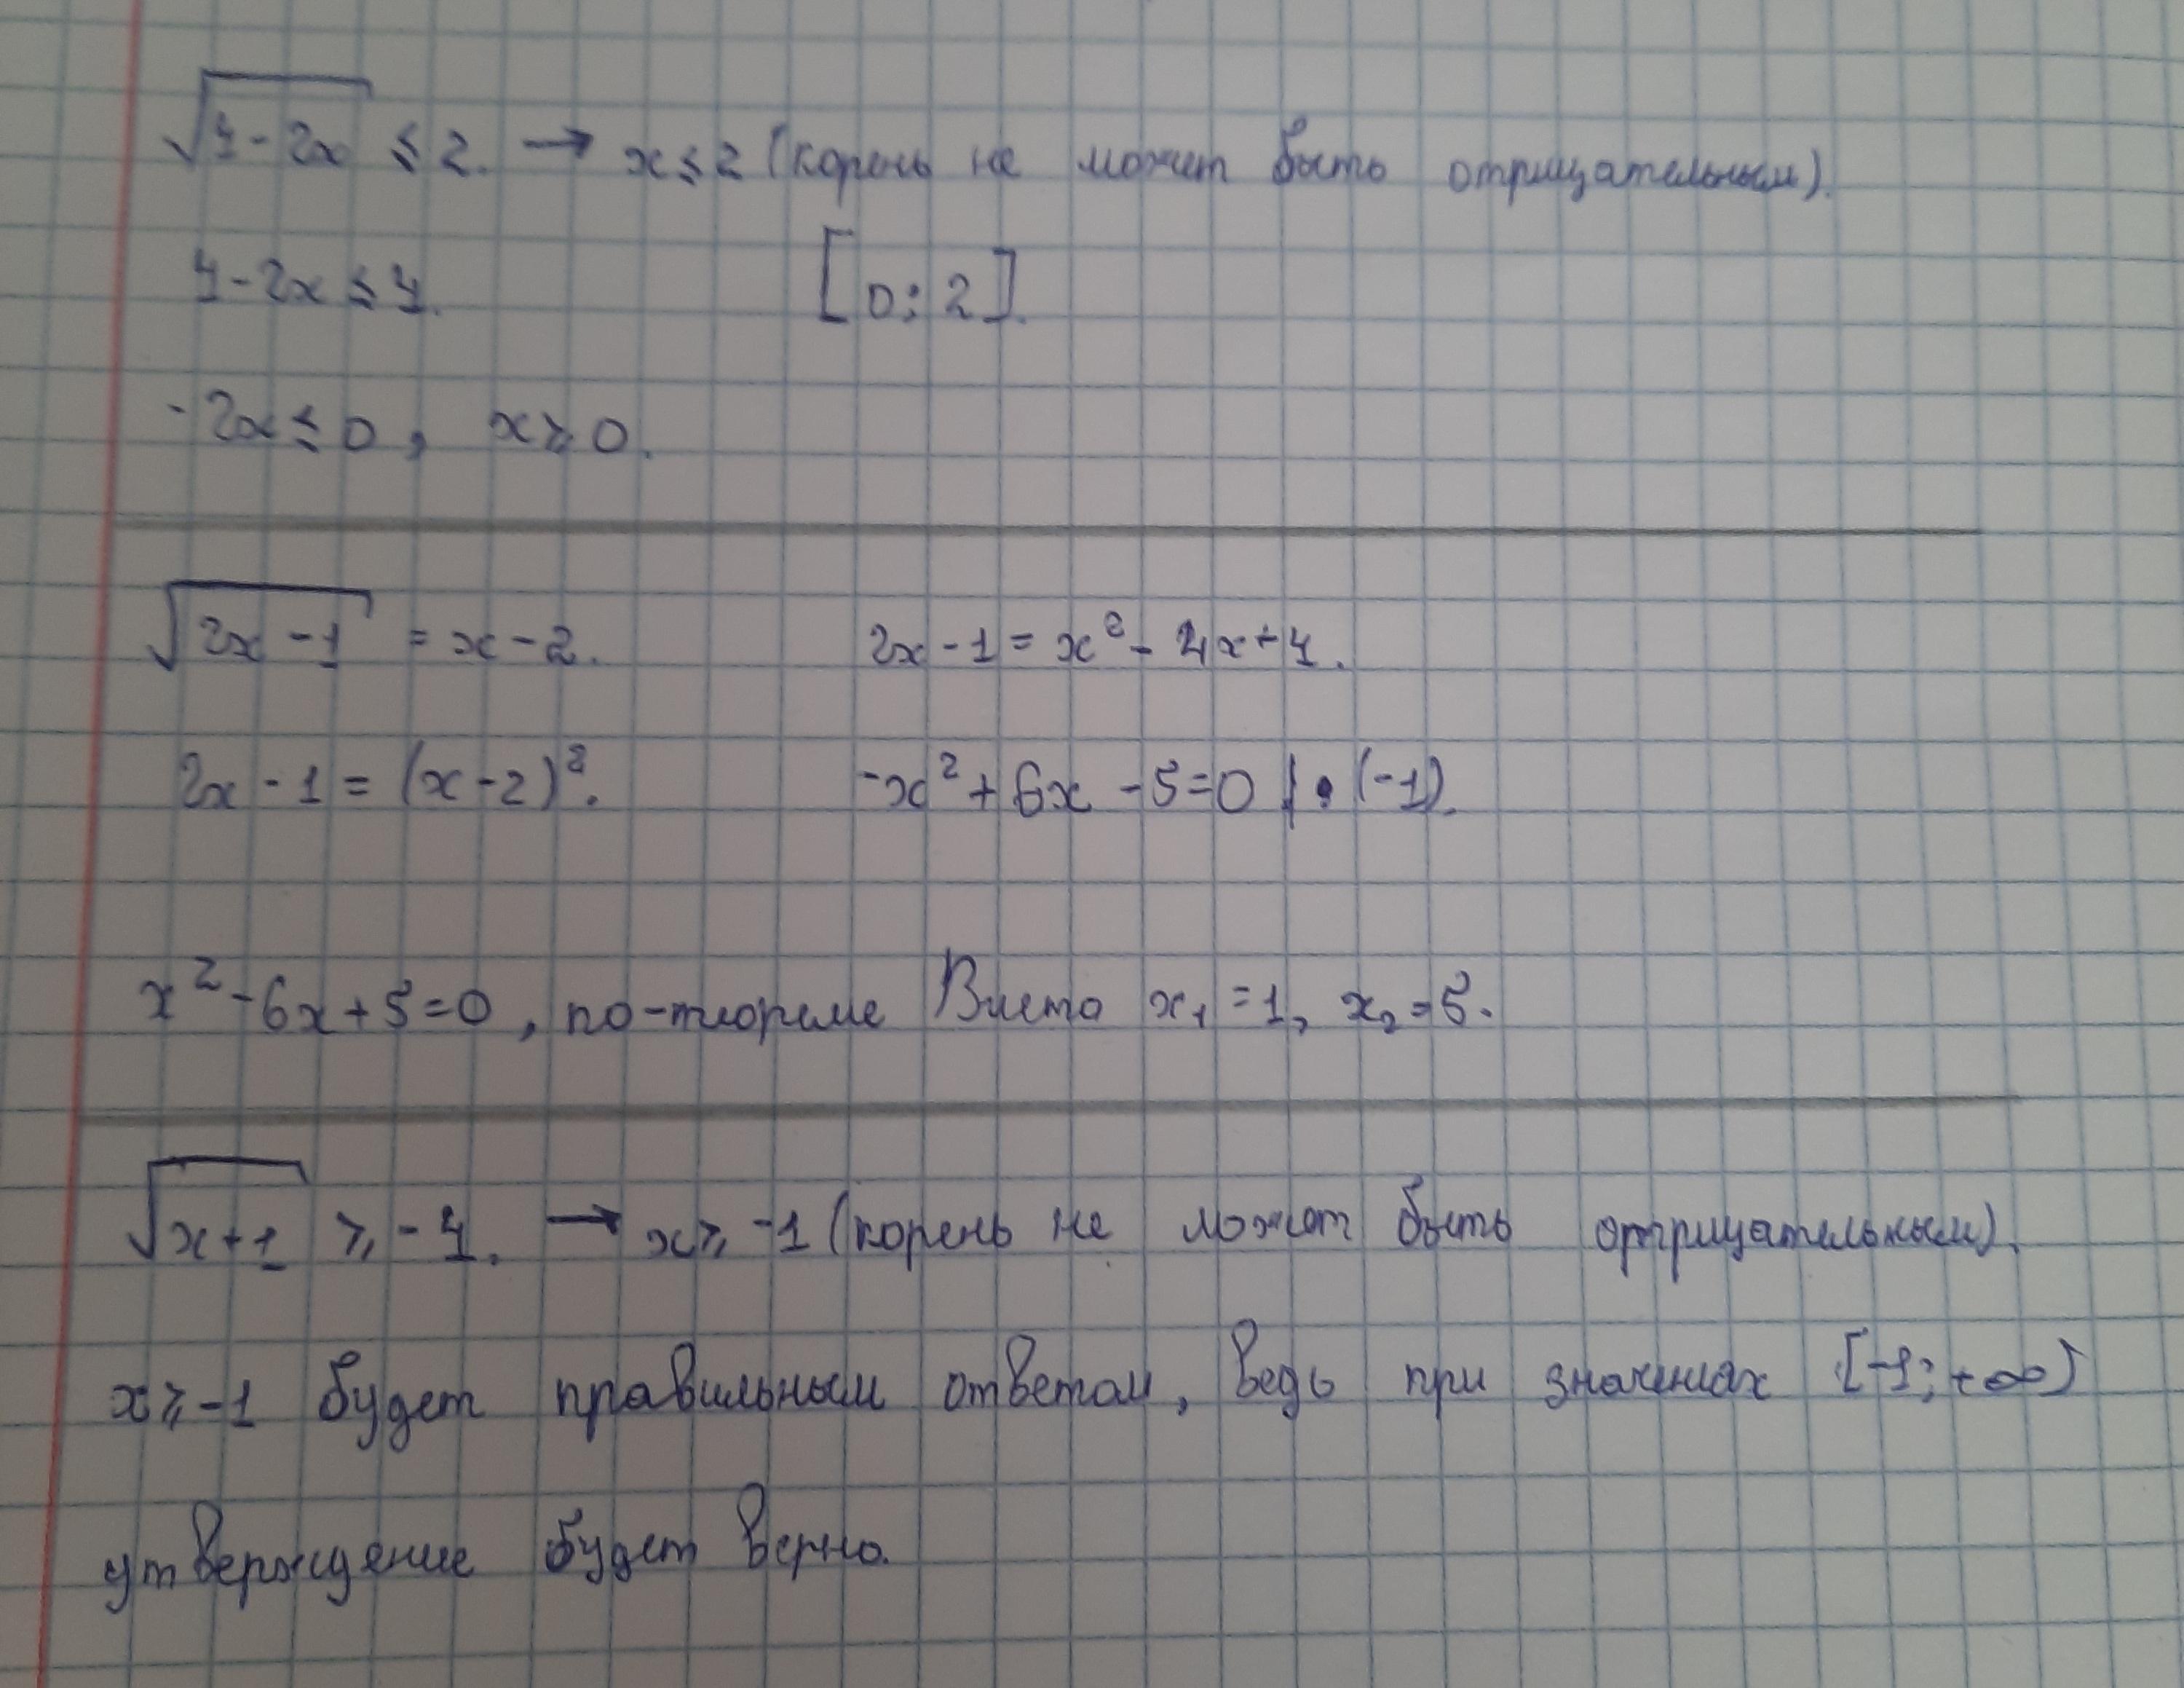 √4-2x ≤ 2. → x ≤ 2 (корень не может быть отрицательным).
4-2x ≤ 4. [0; 2].
-2x ≤ 0, x ≥ 0.
√2x-1 = x-2. 2x-1 = x² - 4x+4.
2x-1 = (x-2)². -x² + 6x - 5=0 | • (-1).
x² - 6x + 5=0, по-теореме Виета x₁=1, x₂=5.
√x+1 ≥ -4. → x ≥ -1 (корень не может быть отрицательным).
x ≥ -1 будет правильным ответом, ведь при значениях [-1; +∞)
утверждение будет верно.